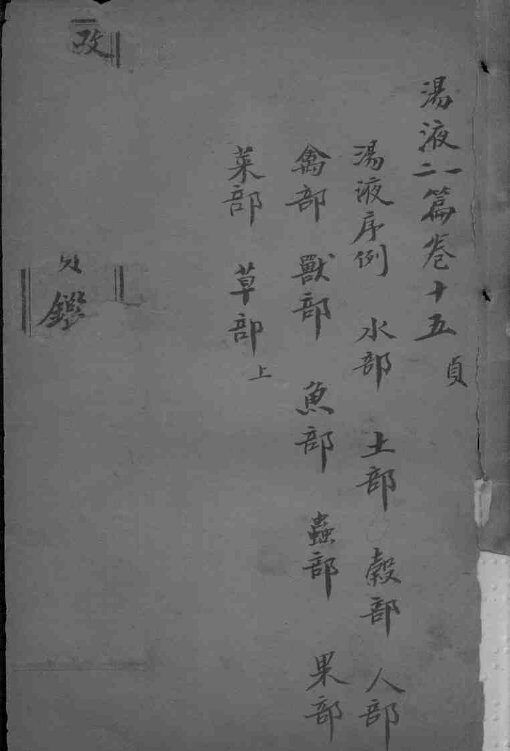 湯液一二篇卷十五 貞
湯液序例 水部 土部 穀部 人部
禽部 獸部 魚部 蟲部 果部
菜部 草部上
改
鑑